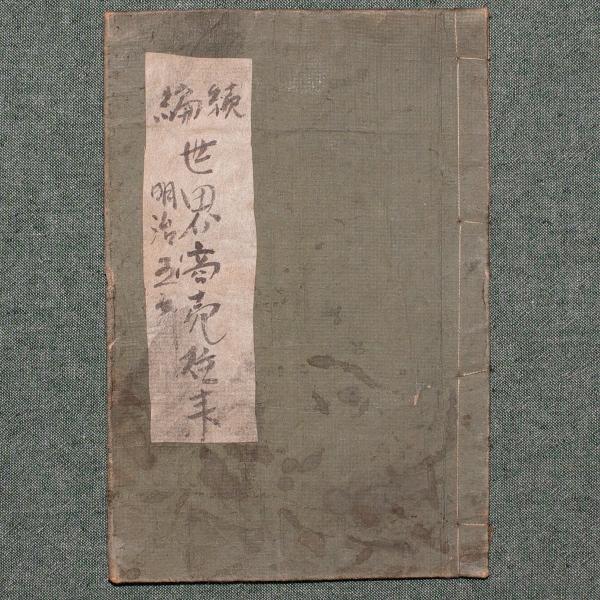 続編
世界商売往来
明治五年